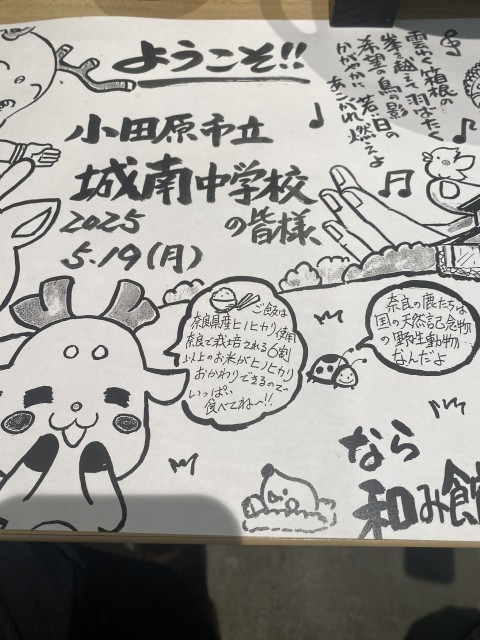 ようこそ!!
小田原市立
城南中学校
の皆様、
2025
5.19(月)
雲わく箱根の
峯を越えて羽ばたく
希望の鳥の影
かがやかに 若い日の
あこがれ燃えよ
ご飯は
奈良県産ヒノヒカリ使用
奈良で栽培される6割
以上のお米がヒノヒカリ
おかわりできるので
いっぱい
食べてね〜!!
奈良の鹿たちは
国の天然記念物
の野生動物
なんだよ
なら
和み館